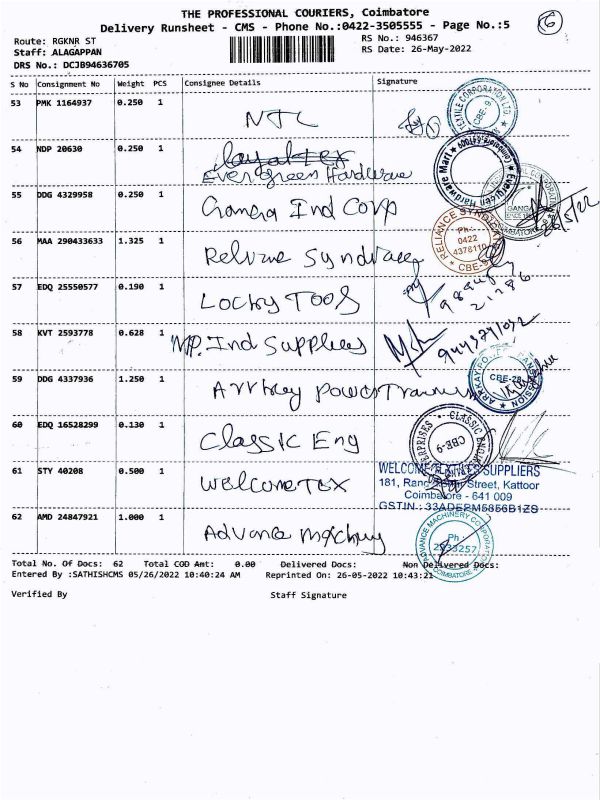 THE PROFESSIONAL COURIERS, Coimbatore
Delivery Runsheet - CMS - Phone No.:0422-3505555 - Page No.:5
6
Route: RGKNR ST
RS No.: 946367
Staff: ALAGAPPAN
RS Date: 26-May-2022
DRS No.: DCJB94636705
S No Consignment No Weight PCS Consignee Details Signature
53 PMK 1164937 0.250 1 NTC
54 NDP 20630 0.250 1
Evergreen Hardware
55 DDG 4329958 0.250 1 Ganga Ind Corp
26/5/22
56 MAA 290433633 1.325 1
RELIANCE SYNDICATE
Ph:
0422
4376110
CBE-9
57 EDQ 25550577 0.190 1 Locky Tools
21286
58 KVT 2593778 0.628 1 MP. Ind Suppliers
59 DDG 4337936 1.250 1
CBE-28
60 EDQ 16528299 0.130 1 Classic Eng
CBE-9
61 STY 40208 0.500 1 Welcome Tex
WELCOME TEXTILES SUPPLIERS
Street, Kattoor
Coimbatore - 641 009
62 AMD 24847921 1.000 1
ADVANCE MACHINERY CORPORATION
Ph :
COIMBATORE
Total No. Of Docs: 62 Total COD Amt: 0.00 Delivered Docs: Non Delivered Docs:
Entered By :SATHISHCMS 05/26/2022 10:40:24 AM Reprinted On: 26-05-2022 10:43:21
Verified By Staff Signature